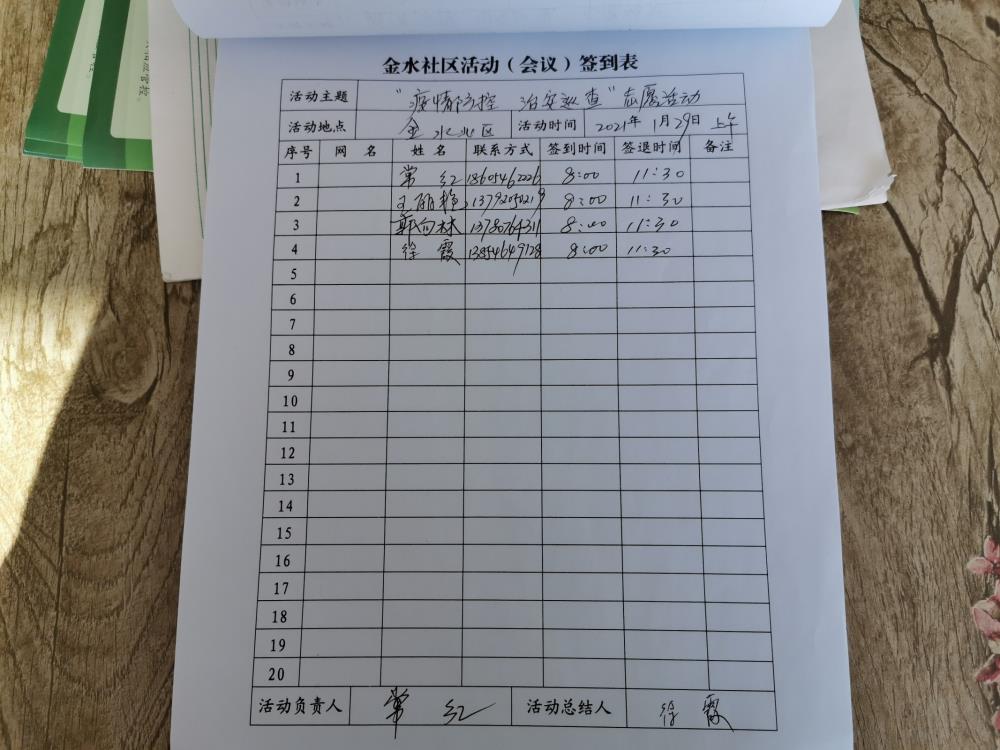 金水社区活动（会议）签到表
活动主题 "疫情防控 治安巡查"志愿活动
活动地点 金水北区 活动时间 2021年1月29日 上午
序号 网名 姓名 联系方式 签到时间 签退时间 备注
1 常红 18605462226 8:00 11:30
2 王丽艳 13792050219 8:00 11:30
3 郭向林 13780764311 8:00 11:30
4 徐霞 13854649128 8:00 11:30
5
6
7
8
9
10
11
12
13
14
15
16
17
18
19
20
活动负责人 常红 活动总结人 徐霞